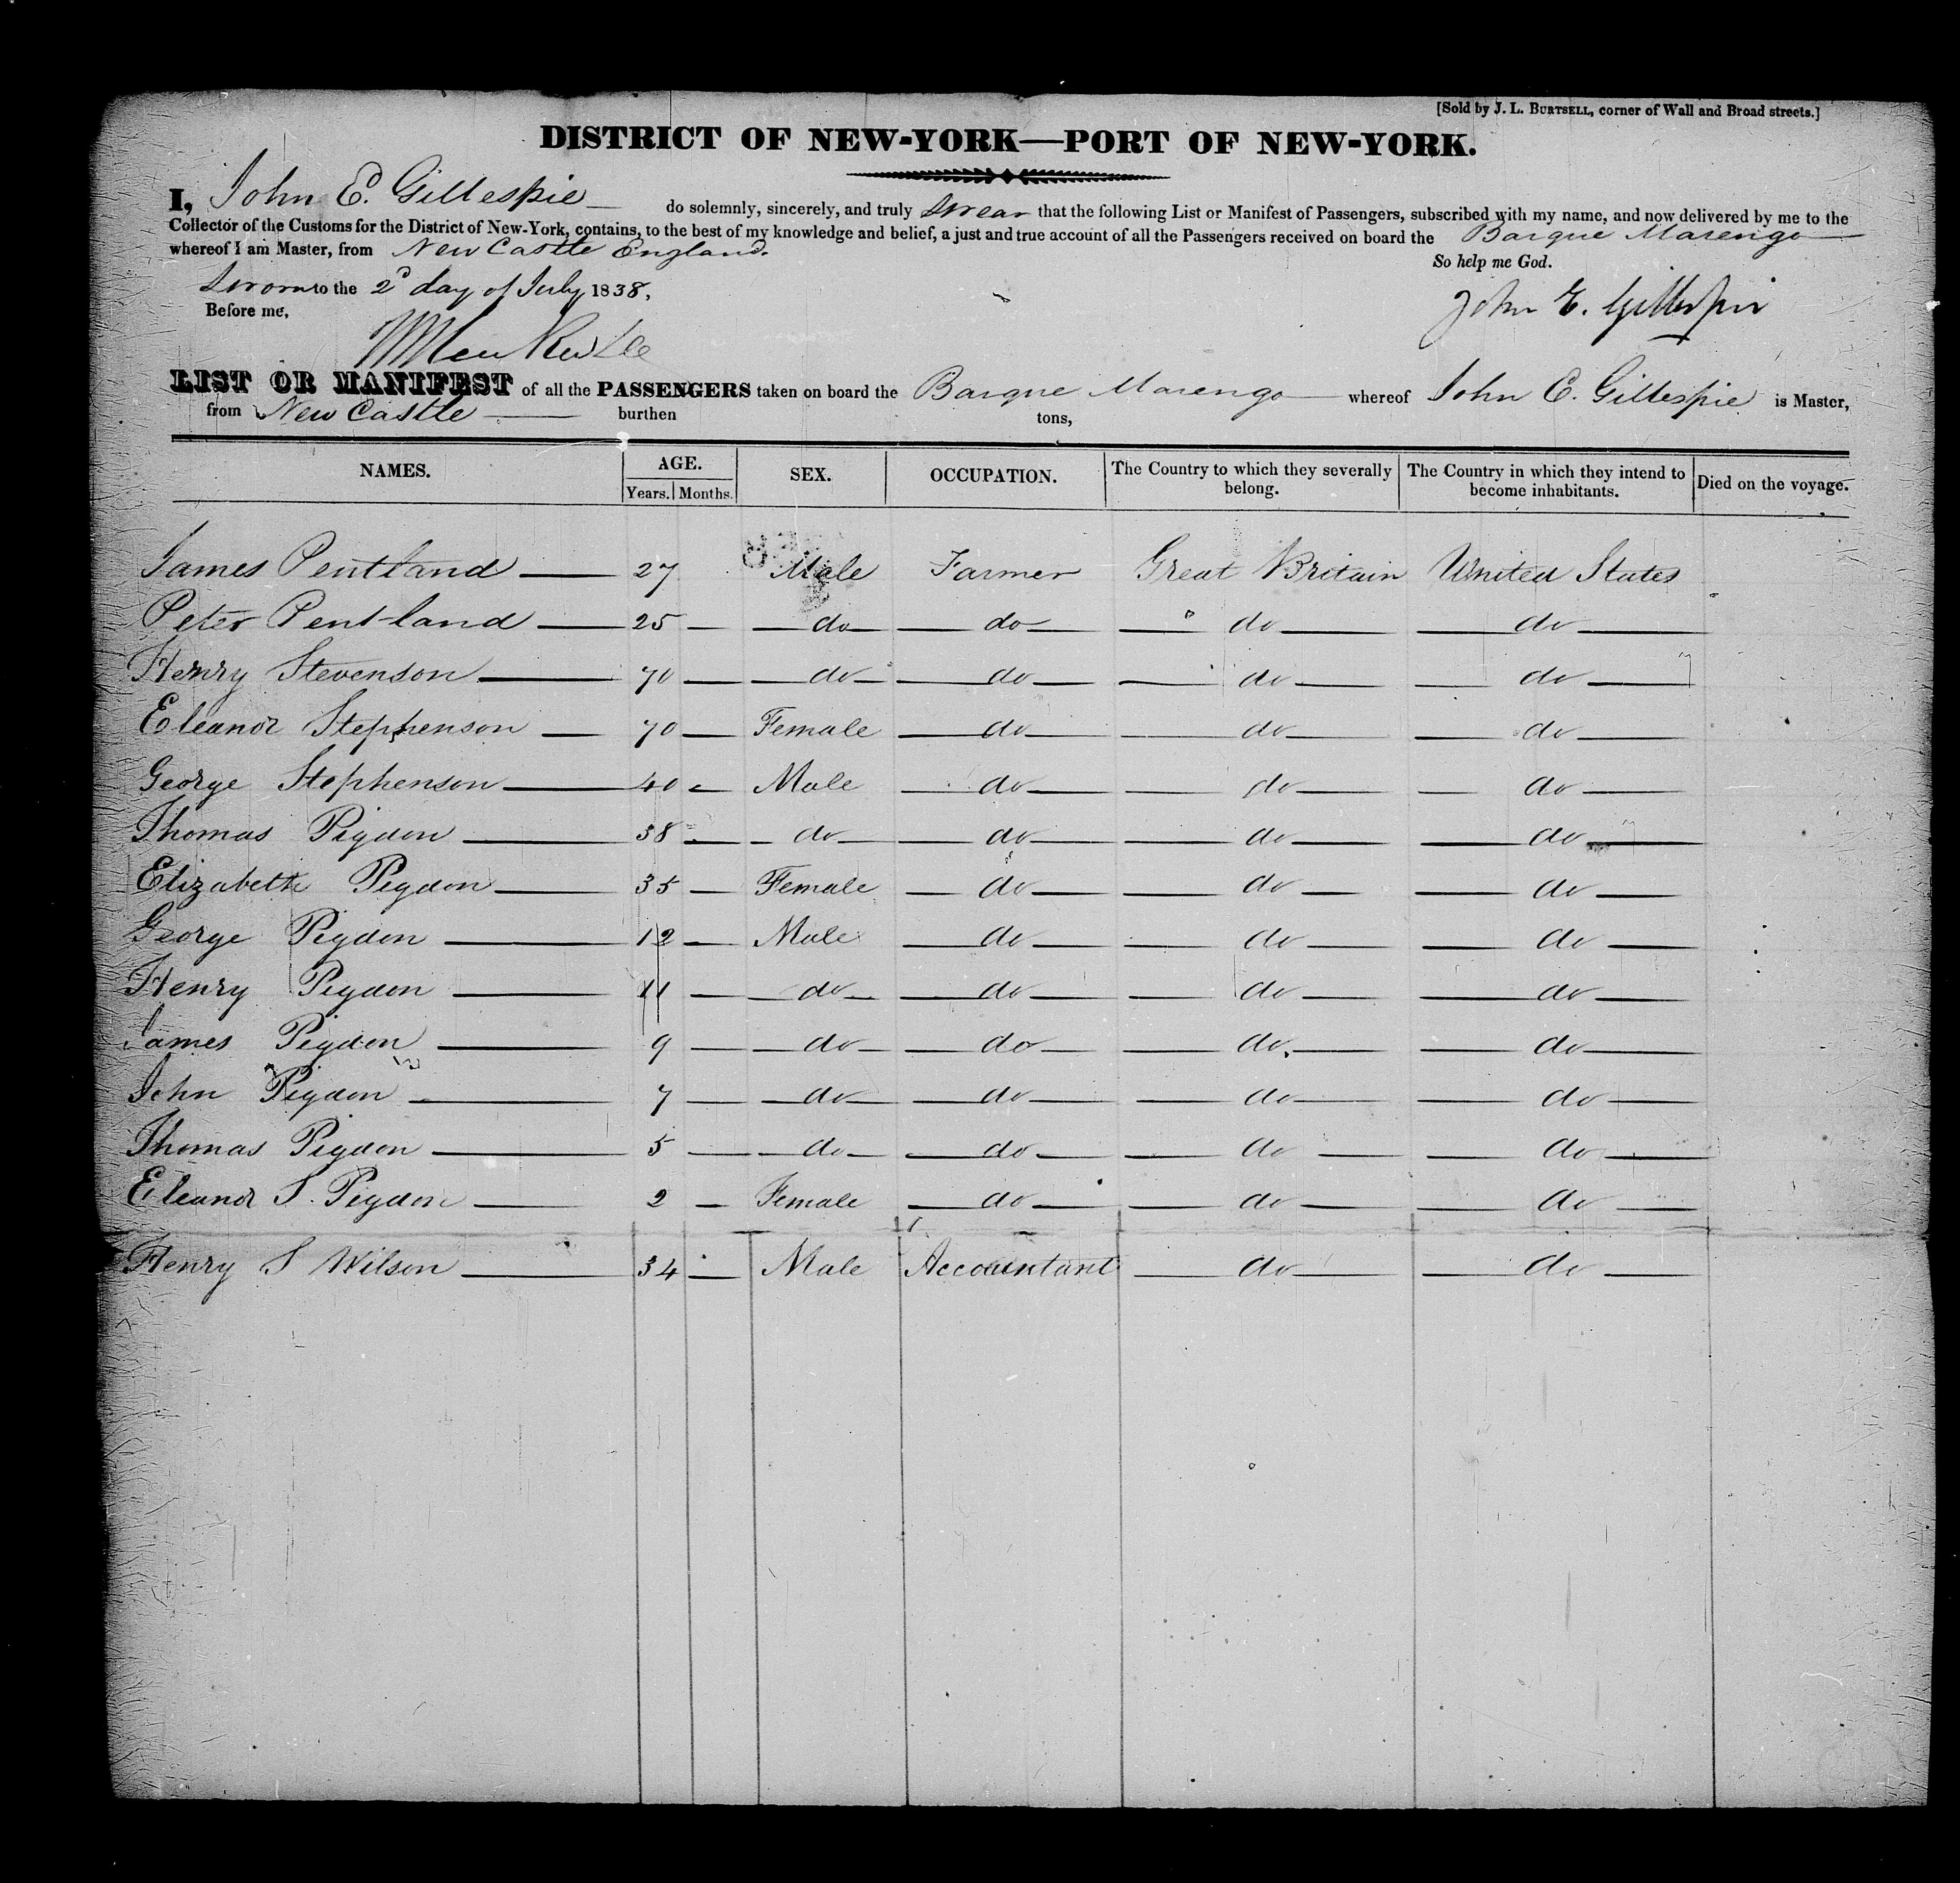 [Sold by J. L. BURTSELL, corner of Wall and Broad streets.]
DISTRICT OF NEW-YORK—PORT OF NEW-YORK.
I, John E. Gillespie do solemnly, sincerely, and truly swear that the following List or Manifest of Passengers, subscribed with my name, and now delivered by me to the
Collector of the Customs for the District of New-York, contains, to the best of my knowledge and belief, a just and true account of all the Passengers received on board the Barque Marengo
whereof I am Master, from New Castle England.
So help me God.
Sworn to the 2d day of July 1838,
John E. Gillespie
Before me,
LIST OR MANIFEST of all the PASSENGERS taken on board the Barque Marengo whereof John E. Gillespie is Master,
from New Castle burthen tons,
NAMES. AGE. SEX. OCCUPATION. The Country to which they severally belong. The Country in which they intend to become inhabitants. Died on the voyage.
Years. Months.
James Pentland 27 Male Farmer Great Britain United States
Peter Pentland 25 do do do do
Henry Stevenson 70 do do do do
Eleanor Stephenson 70 Female do do do
George Stephenson 40 Male do do do
Thomas Pigdon 38 do do do do
Elizabeth Pigdon 35 Female do do do
George Pigdon 12 Male do do do
Henry Pigdon 11 do do do do
James Pigdon 9 do do do do
John Pigdon 7 do do do do
Thomas Pigdon 5 do do do do
Eleanor S. Pigdon 2 Female do do do
Henry S Wilson 34 Male Accountant do do